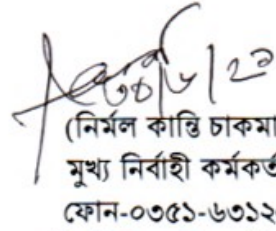 (নির্মল কান্তি চাকমা
মুখ্য নির্বাহী কর্মকর্ত
ফোন-০৩৫১-৬৩১২